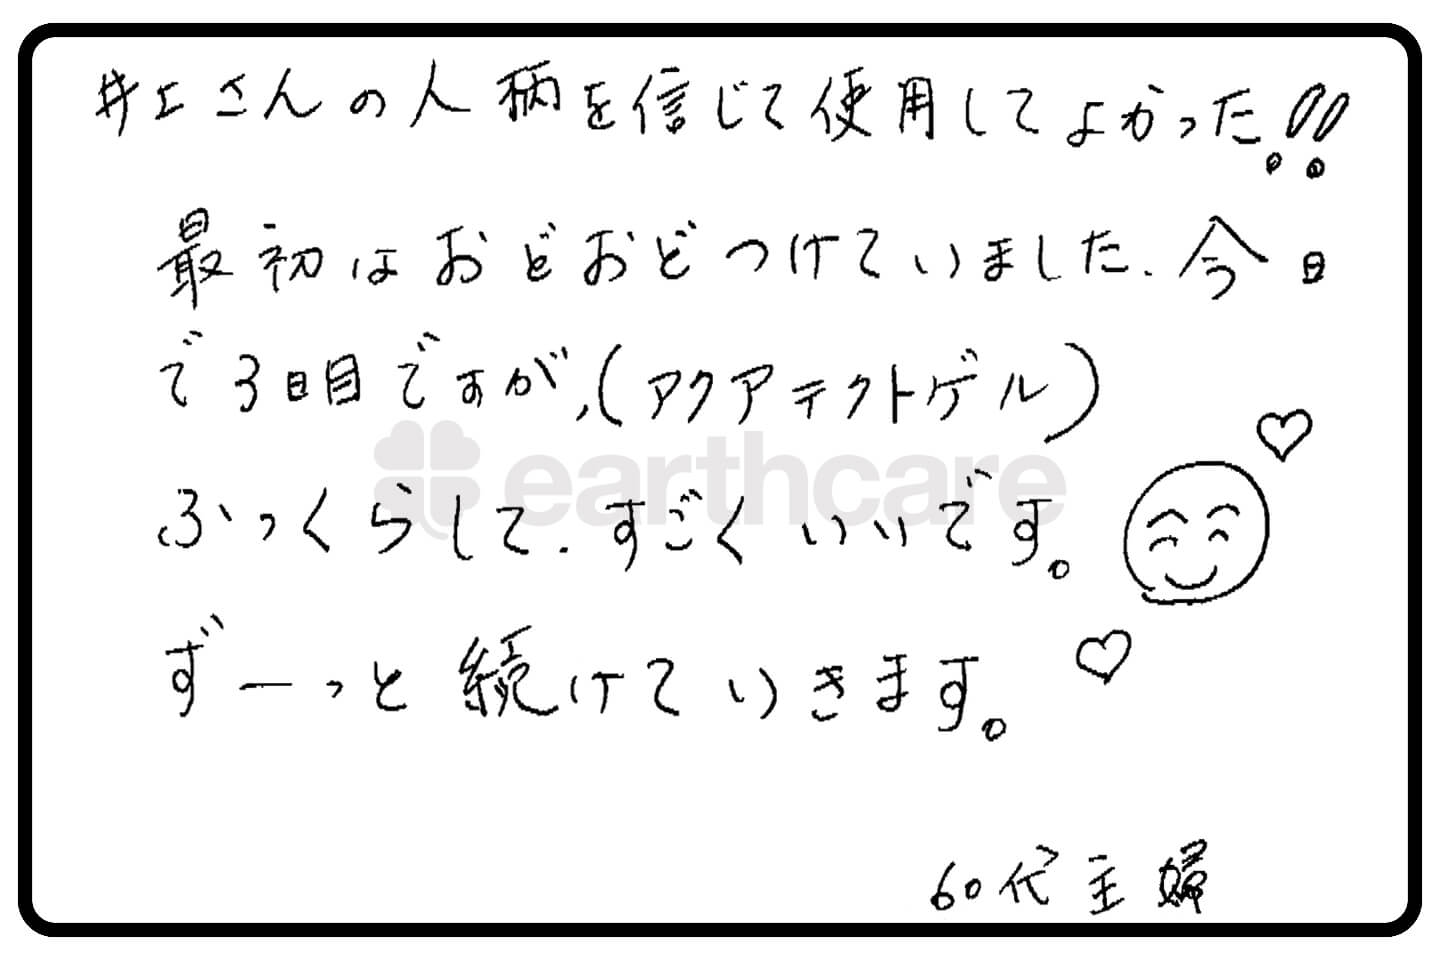 井上さんの人柄を信じて使用してよかった!!
最初はおどおどつけていました、今日
で3日目ですが、(アクアテクトゲル)
earthcare
ふっくらして、すごくいいです。
ずーっと続けていきます。
60代主婦